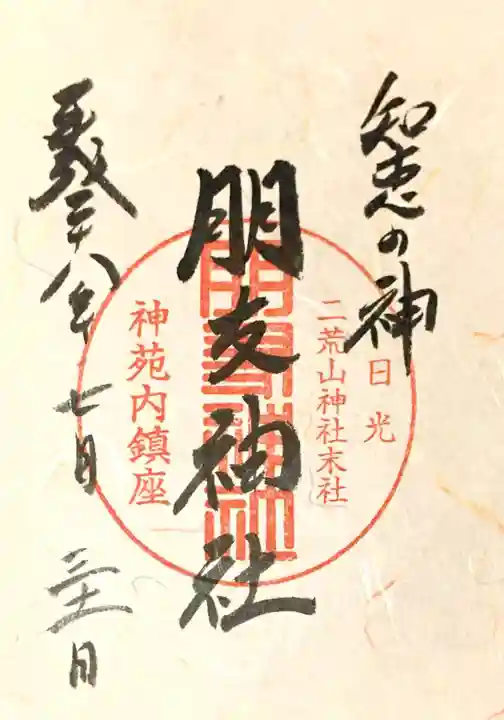 知恵の神
日光
二荒山神社末社
朋友神社
神苑内鎮座
平成二十八年 七月 三十一日